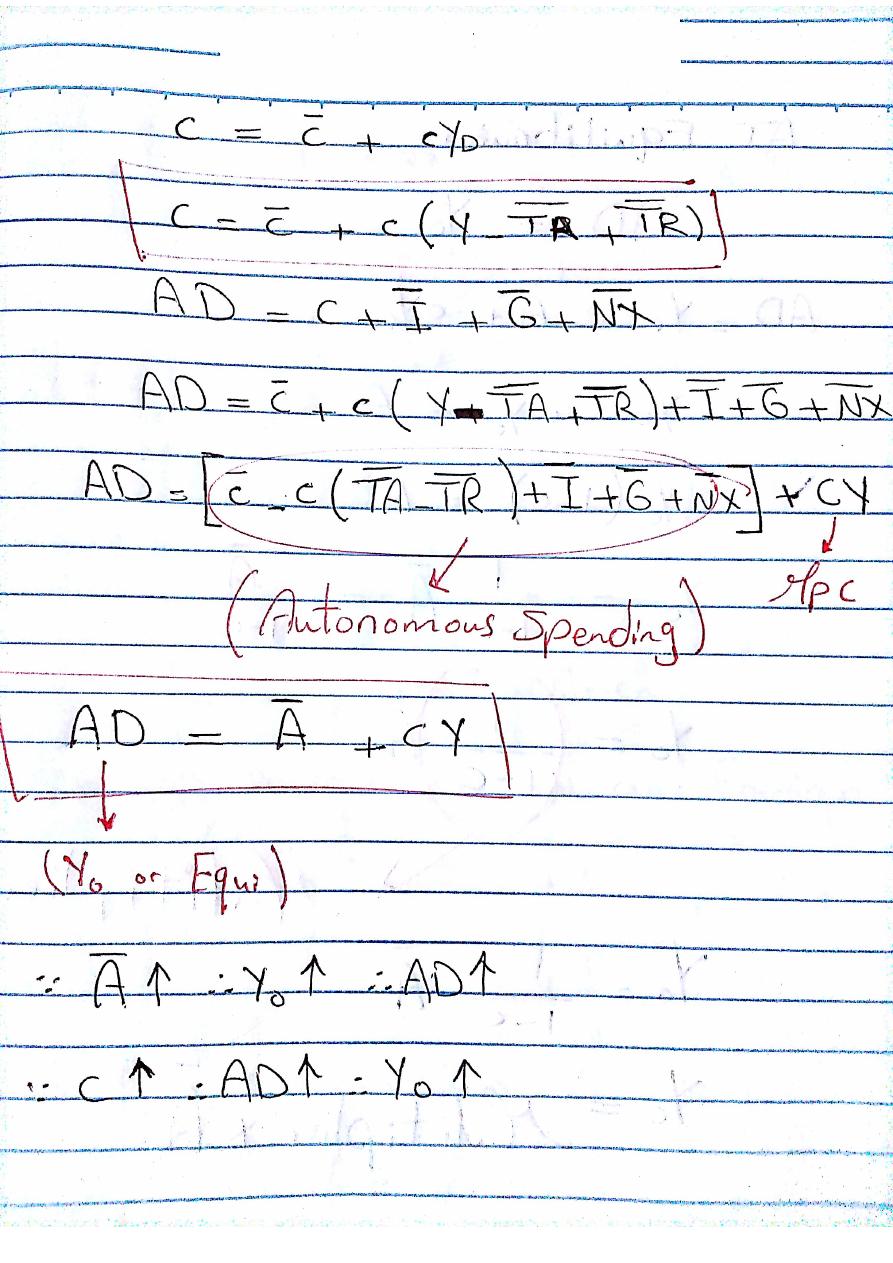 C = C̄ + cYD
C = C̄ + c(Y - T̄Ā + T̄R̄)
AD = C + Ī + Ḡ + N̄X̄
AD = C̄ + c(Y - T̄Ā + T̄R̄) + Ī + Ḡ + N̄X̄
AD = [C̄ - c(T̄Ā - T̄R̄) + Ī + Ḡ + N̄X̄] + CY
Mpc
(Autonomous Spending)
AD = Ā + CY
(Y₀ or Equi)
∵ Ā ↑ ∴ Y₀ ↑ ∴ AD ↑
∵ C ↑ ∴ AD ↑ ∴ Y₀ ↑